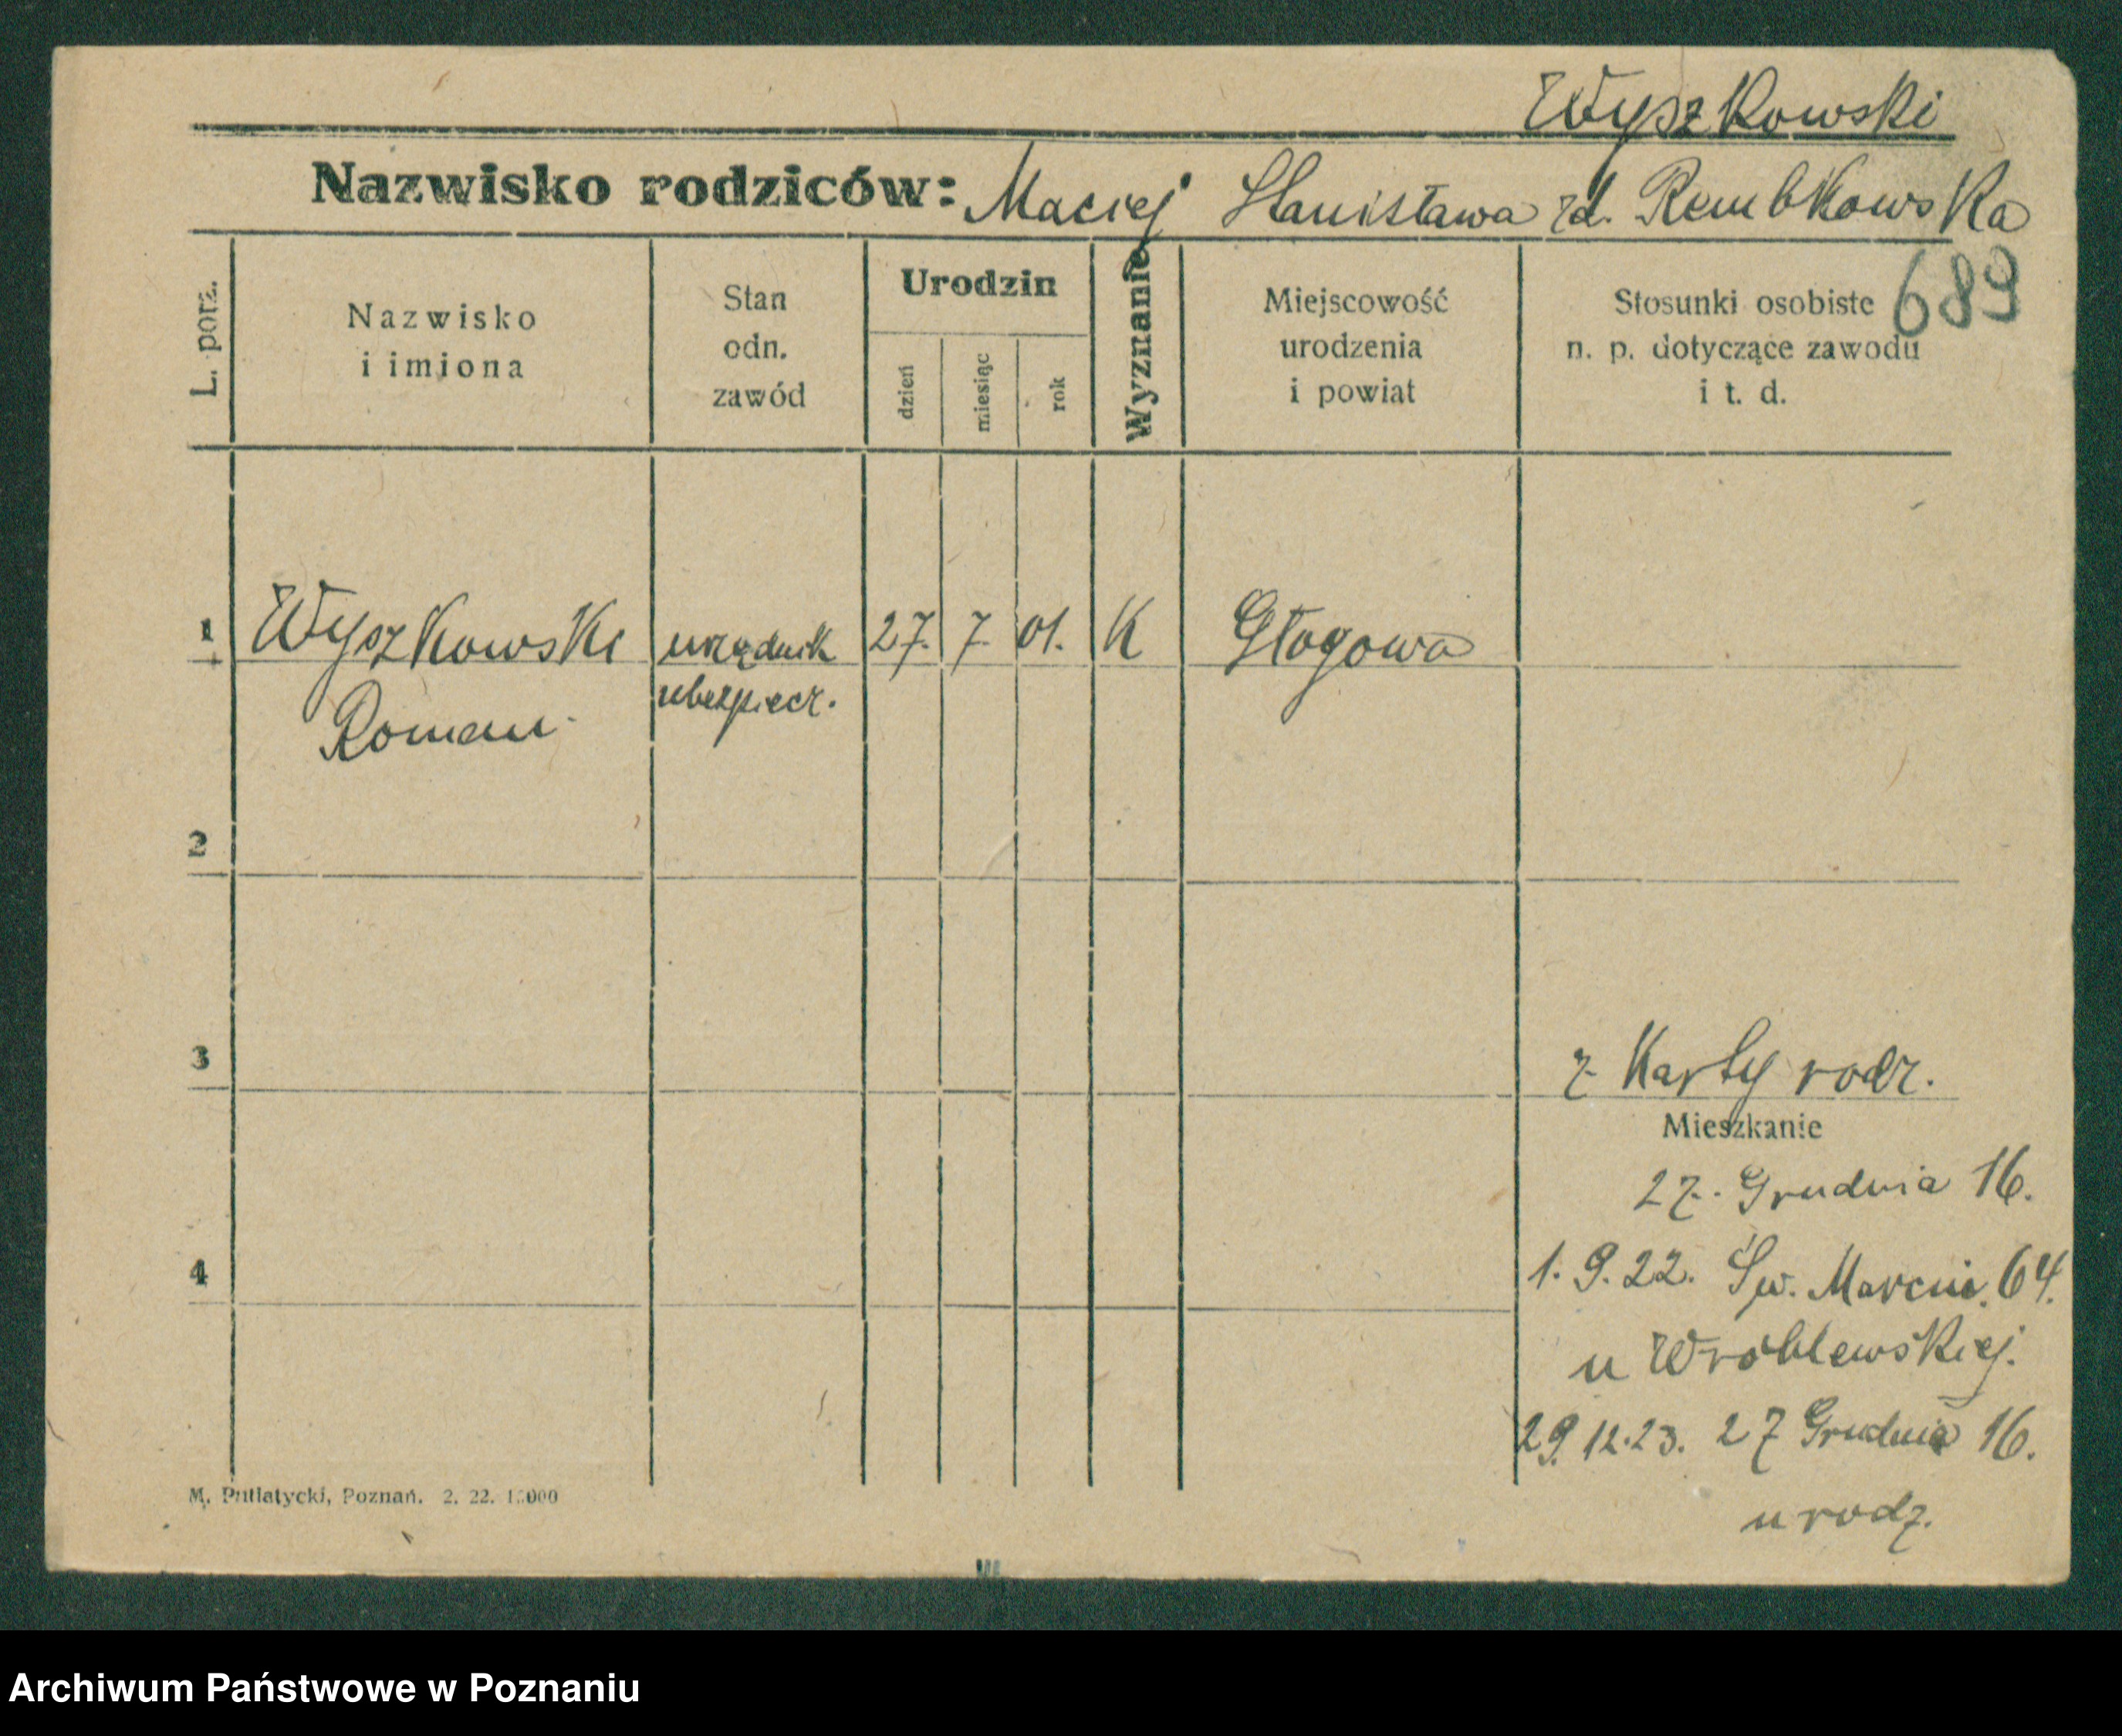 Wyszkowski
Nazwisko rodziców: Maciej Stanisława zd. Rembkowska
689
L. porz.
Nazwisko
i imiona
Stan
odn.
zawód
Urodzin
dzień
miesiąc
rok
Wyznanie
Miejscowość
urodzenia
i powiat
Stosunki osobiste
n. p. dotyczące zawodu
i t. d.
1 Wyszkowski urzędnik 27. 7 01. K Głogowa
Roman ubezpiecz.
2
3
z Karty rodz.
Mieszkanie
27. Grudnia 16.
4
1. 9. 22. Św. Marcin. 64.
u Wróblewskiej.
29. 12. 23. 27 Grudnia 16.
u rodz.
M. Putiatycki, Poznań. 2. 22.
Archiwum Państwowe w Poznaniu